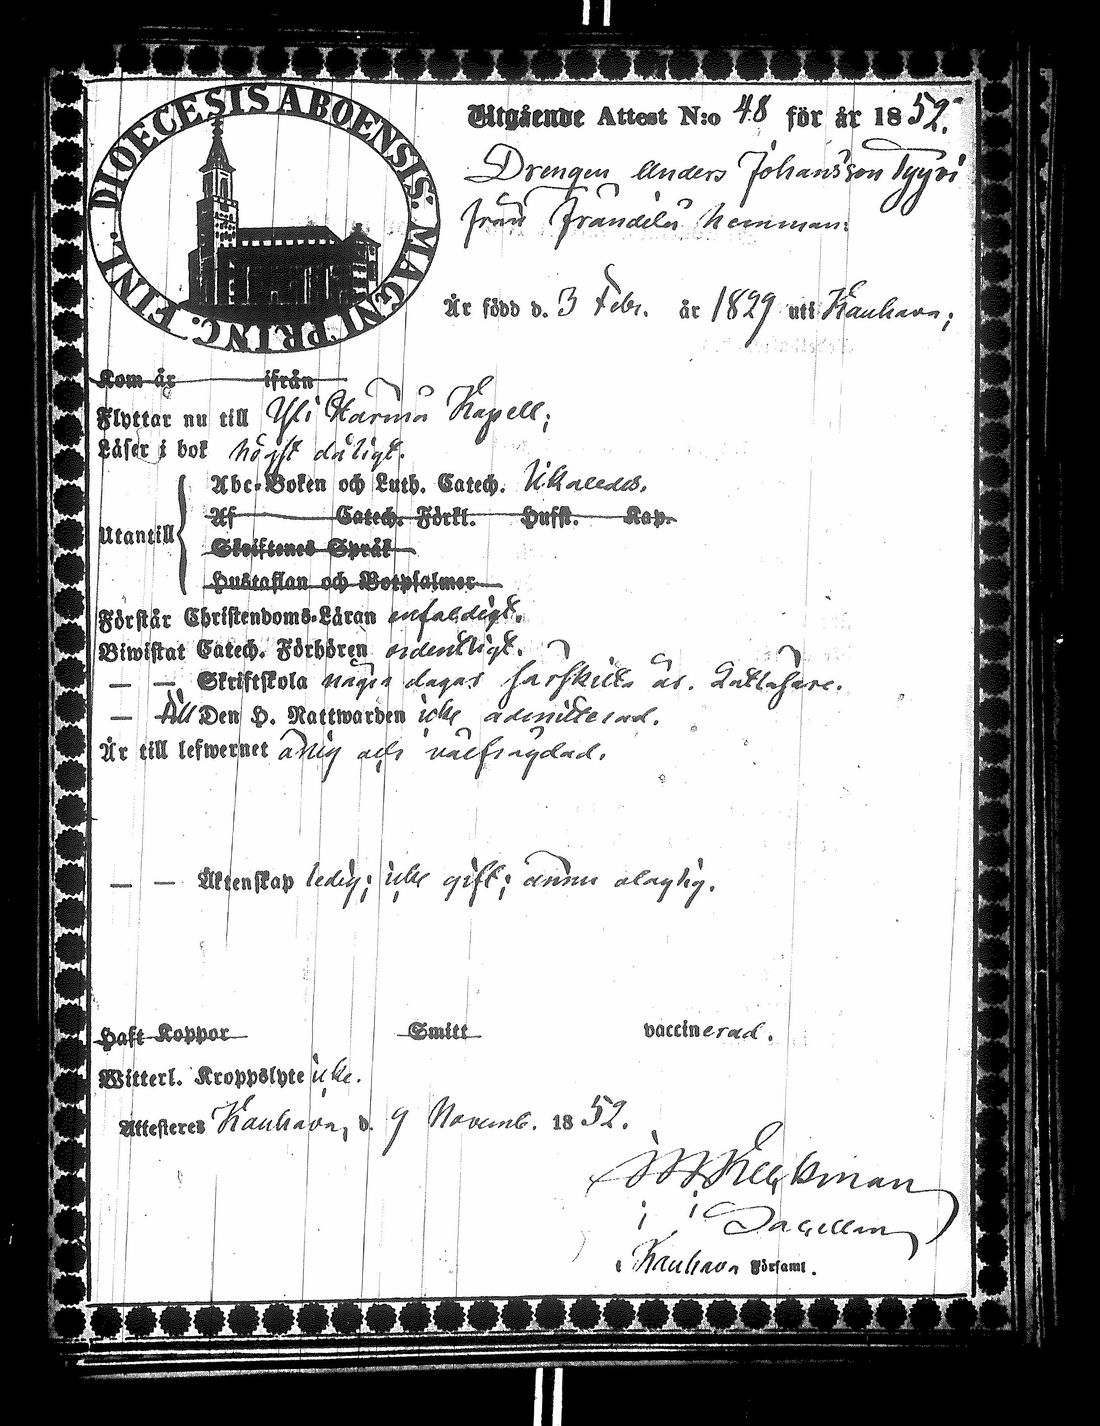 DIOECESIS ABOENSIS. MAGNI PRINC. FINL.
Utgående Attest N:o 48 för år 1852.
Drengen Anders Johansson Tyyri
från Frändilä hemman.
Är född d. 3 Febr. år 1829 uti Kauhava;
Kom år ifrån
Flyttar nu till Yli Härmä Kapell;
Läser i bok högst dåligt.
Abc-Boken och Luth. Catech. likaledes.
Af Catech. Förkl. Husst. Kap.
Utantill
Skriftenes Språk
Hustaflan och Botpsalmer
Förstår Christendoms-Läran enfaldigt.
Biwistat Catech. Förhören ordentligt.
— — Skriftskola några dagar särskilte år.
— Till Den H. Nattwarden icke admitterad.
Är till lefwernet ärlig och välfrägdad.
— — Äktenskap ledig; icke gift; ännu
Haft Koppor Smitt vaccinerad.
Witterl. Kroppslyte icke.
Attesteres Kauhava, d. 9 Novemb. 1852.
Kauhava Församl.